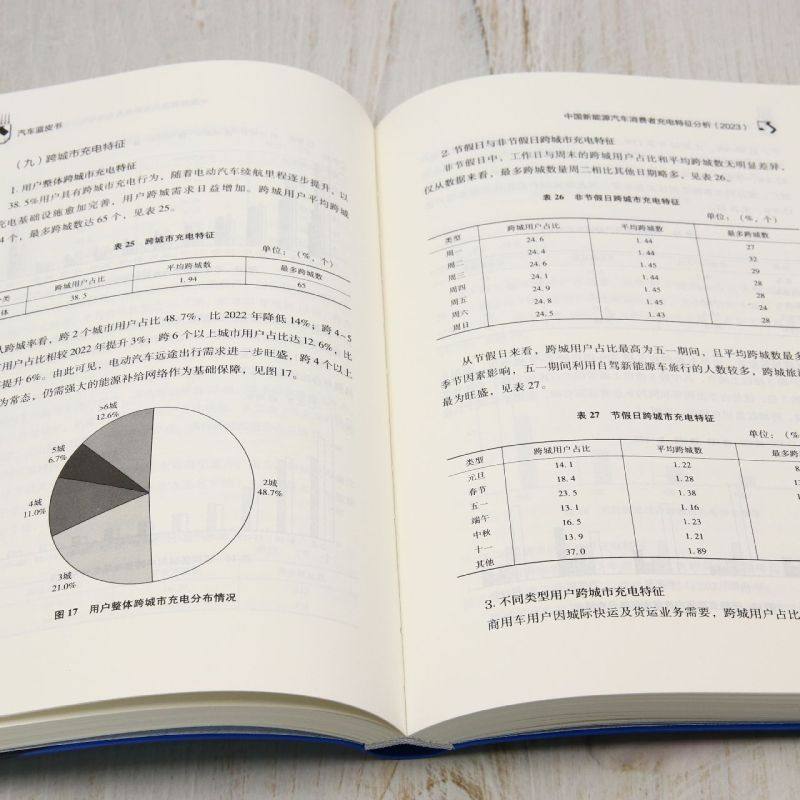 汽车蓝皮书
（九）跨城市充电特征
1. 用户整体跨城市充电特征
38.5%用户具有跨城市充电行为，随着电动汽车续航里程逐步提升，以
充电基础设施愈加完善，用户跨城需求日益增加。跨城用户平均跨城
4个，最多跨城数达65个，见表25。
表 25 跨城市充电特征
单位：（%，个）
类 跨城用户占比 平均跨城数 最多跨城数
体 38.5 1.94 65
从跨城率看，跨2个城市用户占比48.7%，比2022年降低14%；跨4~5
用户占比相较2022年提升3%；跨6个以上城市用户占比达12.6%，比
提升6%。由此可见，电动汽车远途出行需求进一步旺盛，跨4个以上
为常态，仍需强大的能源补给网络作为基础保障，见图17。
>6城
12.6%
5城
6.7%
4城
11.0%
3城
21.0%
2城
48.7%
图 17 用户整体跨城市充电分布情况
中国新能源汽车消费者充电特征分析（2023）
2. 节假日与非节假日跨城市充电特征
非节假日中，工作日与周末的跨城用户占比和平均跨城数无明显差异，
仅从数据来看，最多跨城数量周二相比其他日期略多，见表26。
表 26 非节假日跨城市充电特征
单位：（%，个）
类型 跨城用户占比 平均跨城数 最多跨城数
周一 24.6 1.44 27
周二 24.4 1.44 32
周三 24.6 1.45 29
周四 24.1 1.44 28
周五 24.9 1.45 28
周六 24.8 1.45 24
周日 24.5 1.43 28
从节假日来看，跨城用户占比最高为五一期间，且平均跨城数最多
季节因素影响，五一期间利用自驾新能源车旅行的人数较多，跨城旅游
最为旺盛，见表27。
表 27 节假日跨城市充电特征
单位：（%
类型 跨城用户占比 平均跨城数 最多跨
元旦 14.1 1.22 8
春节 18.4 1.28 13
五一 23.5 1.38 1
端午 13.1 1.16
中秋 16.5 1.23 1
十一 13.9 1.21
其他 37.0 1.89
3. 不同类型用户跨城市充电特征
商用车用户因城际快运及货运业务需要，跨城用户占比